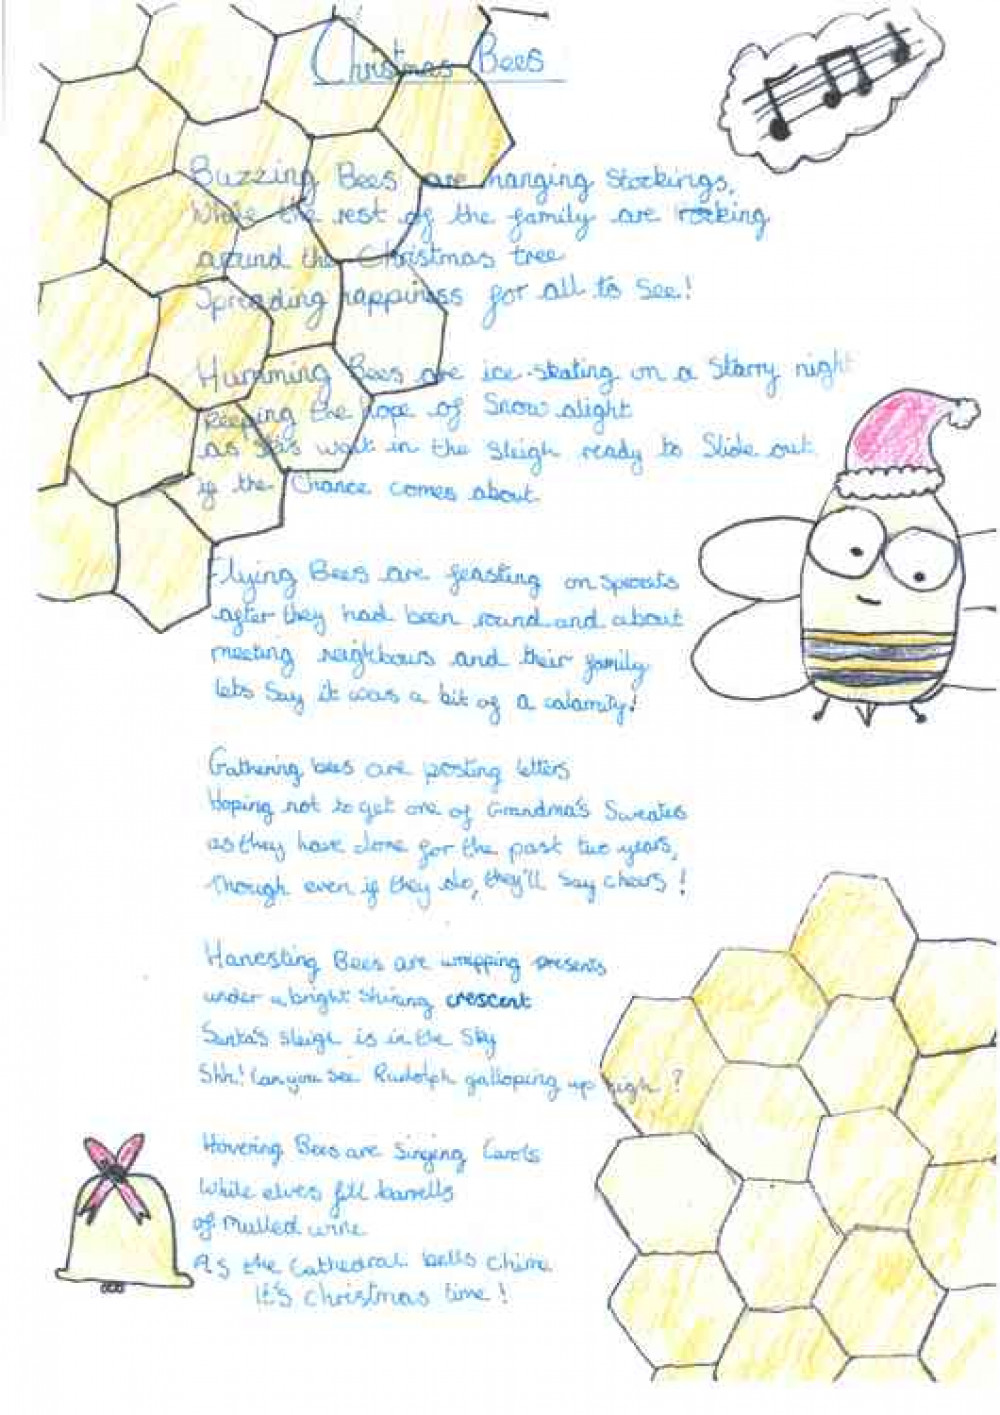 Christmas Bees
Buzzing Bees are hanging Stockings,
While the rest of the family are rocking
around the Christmas tree
Spreading happiness for all to see!
Humming Bees are ice-skating on a Starry night
Keeping the hope of Snow alight
as wait in the sleigh ready to Slide out
if the Chance comes about
Flying Bees are feasting on sprouts
after they had been round and about
meeting neighbours and their family
lets Say it was a bit of a calamity!
Gathering bees are posting letters
Hoping not to get one of Grandma's Sweaters
as they have done for the past two years,
Though even if they do, they'll say cheers!
Harvesting Bees are wrapping presents
under a bright shining crescent
Santa's sleigh is in the Sky
Shh! Can you see Rudolph galloping up high?
Hovering Bees are Singing Carols
While elves fill barrells
of mulled wine
As the Cathedral bells chime
It's Christmas time!